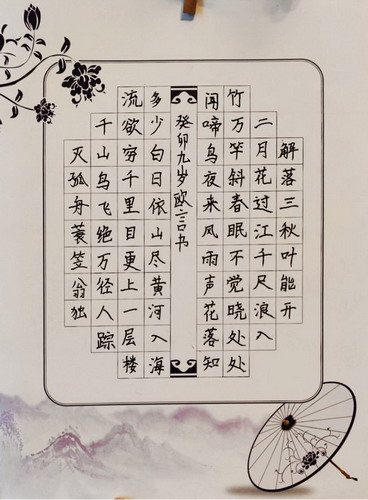 解落三秋叶能开
二月花过江千尺浪入
竹万竿斜春眠不觉晓处处
闻啼鸟夜来风雨声花落知
癸卯九岁欧言书
多少白日依山尽黄河入海
流欲穷千里目更上一层楼
千山鸟飞绝万径人踪
灭孤舟蓑笠翁独